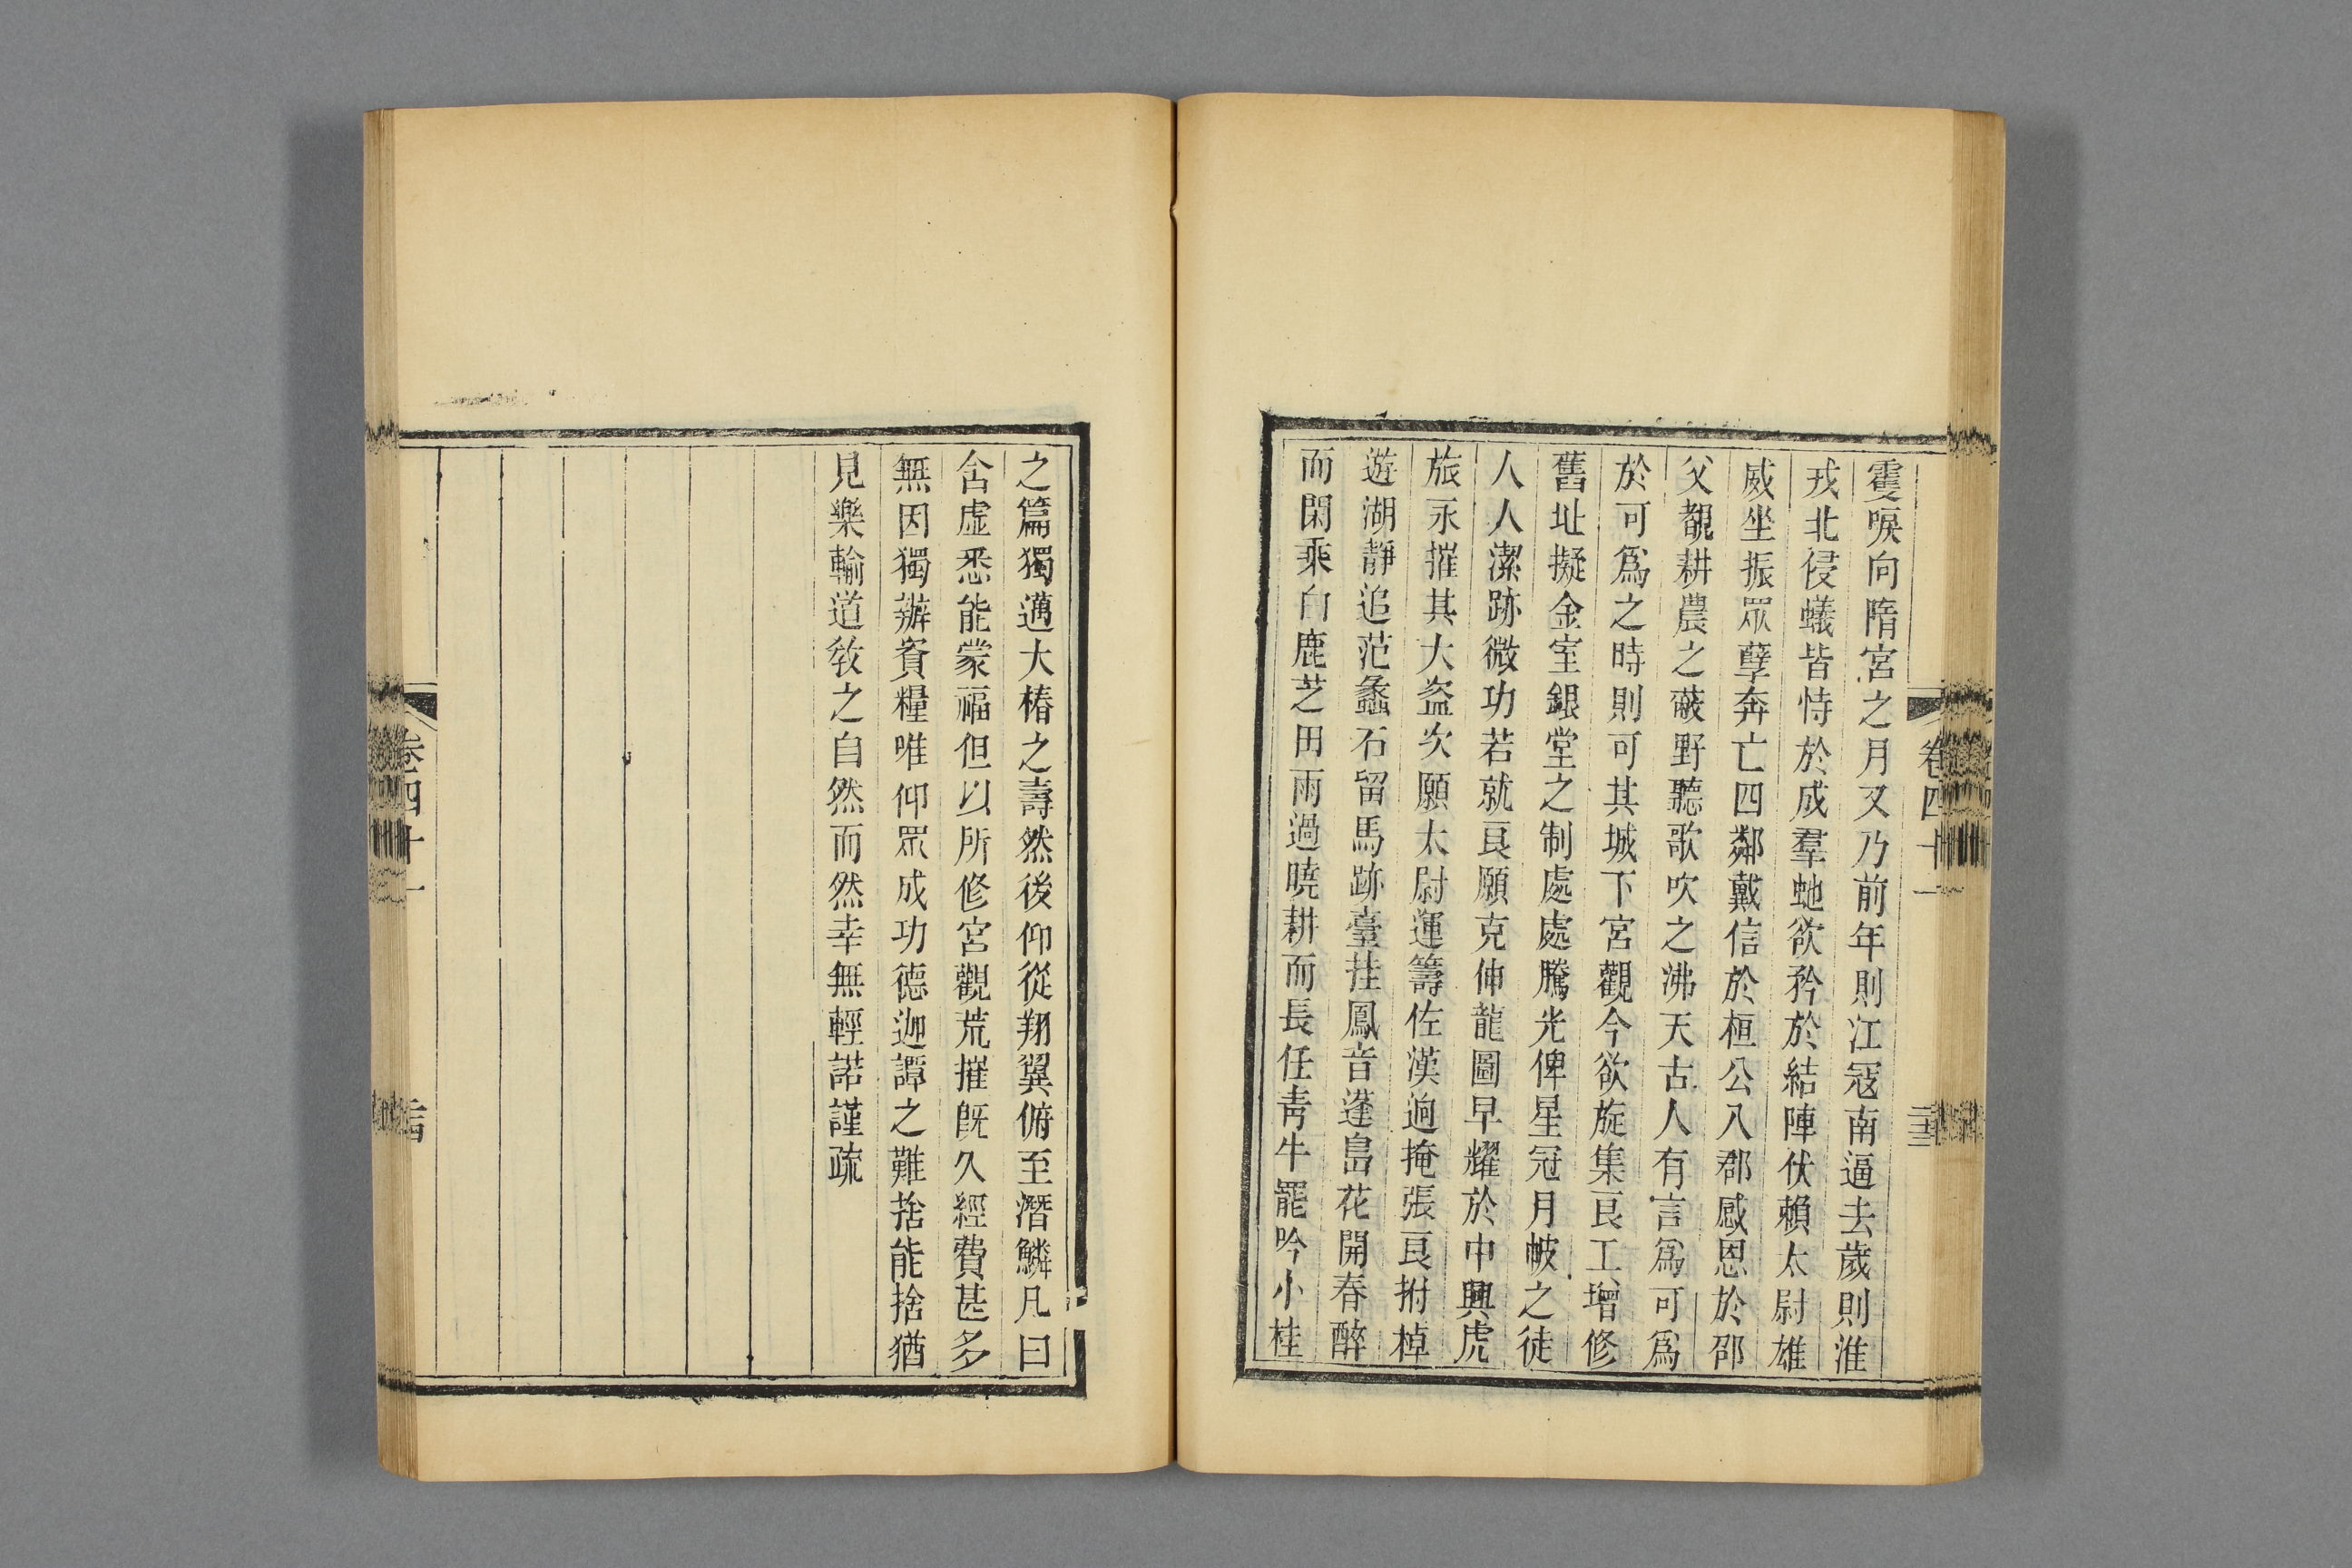 霍唳向隋宮之月又乃前年則江冦南逼去歲則淮
戎北侵蟻皆恃於成羣虵欲矜於結陣伏賴太尉雄
威坐振眾孽奔亡四鄰戴信於桓公八郡感恩於邵
父覩耕農之蔽野聽歌吹之沸天古人有言爲可爲
於可爲之時則可其城下宮觀今欲旋集良工增修
舊址擬金室銀堂之制處處騰光俾星冠月帔之徒
人人潔跡微功若就良願克伸龍圖早耀於中興虎
旅永摧其大盜次願太尉運籌佐漢逈掩張良拊棹
遊湖靜追范蠡石留馬跡臺挂鳳音蓬島花開春醉
而閑乘白鹿芝田雨過曉耕而長任青牛罷吟小桂
卷四十一
之篇獨邁大椿之壽然後仰從翔翼俯至潛鱗凡曰
含虛悉能蒙福但以所修宮觀荒摧旣久經費甚多
無因獨辦資糧唯仰眾成功德迦譚之難捨能捨猶
見樂輸道敎之自然而然幸無輕諾謹疏
卷四十一